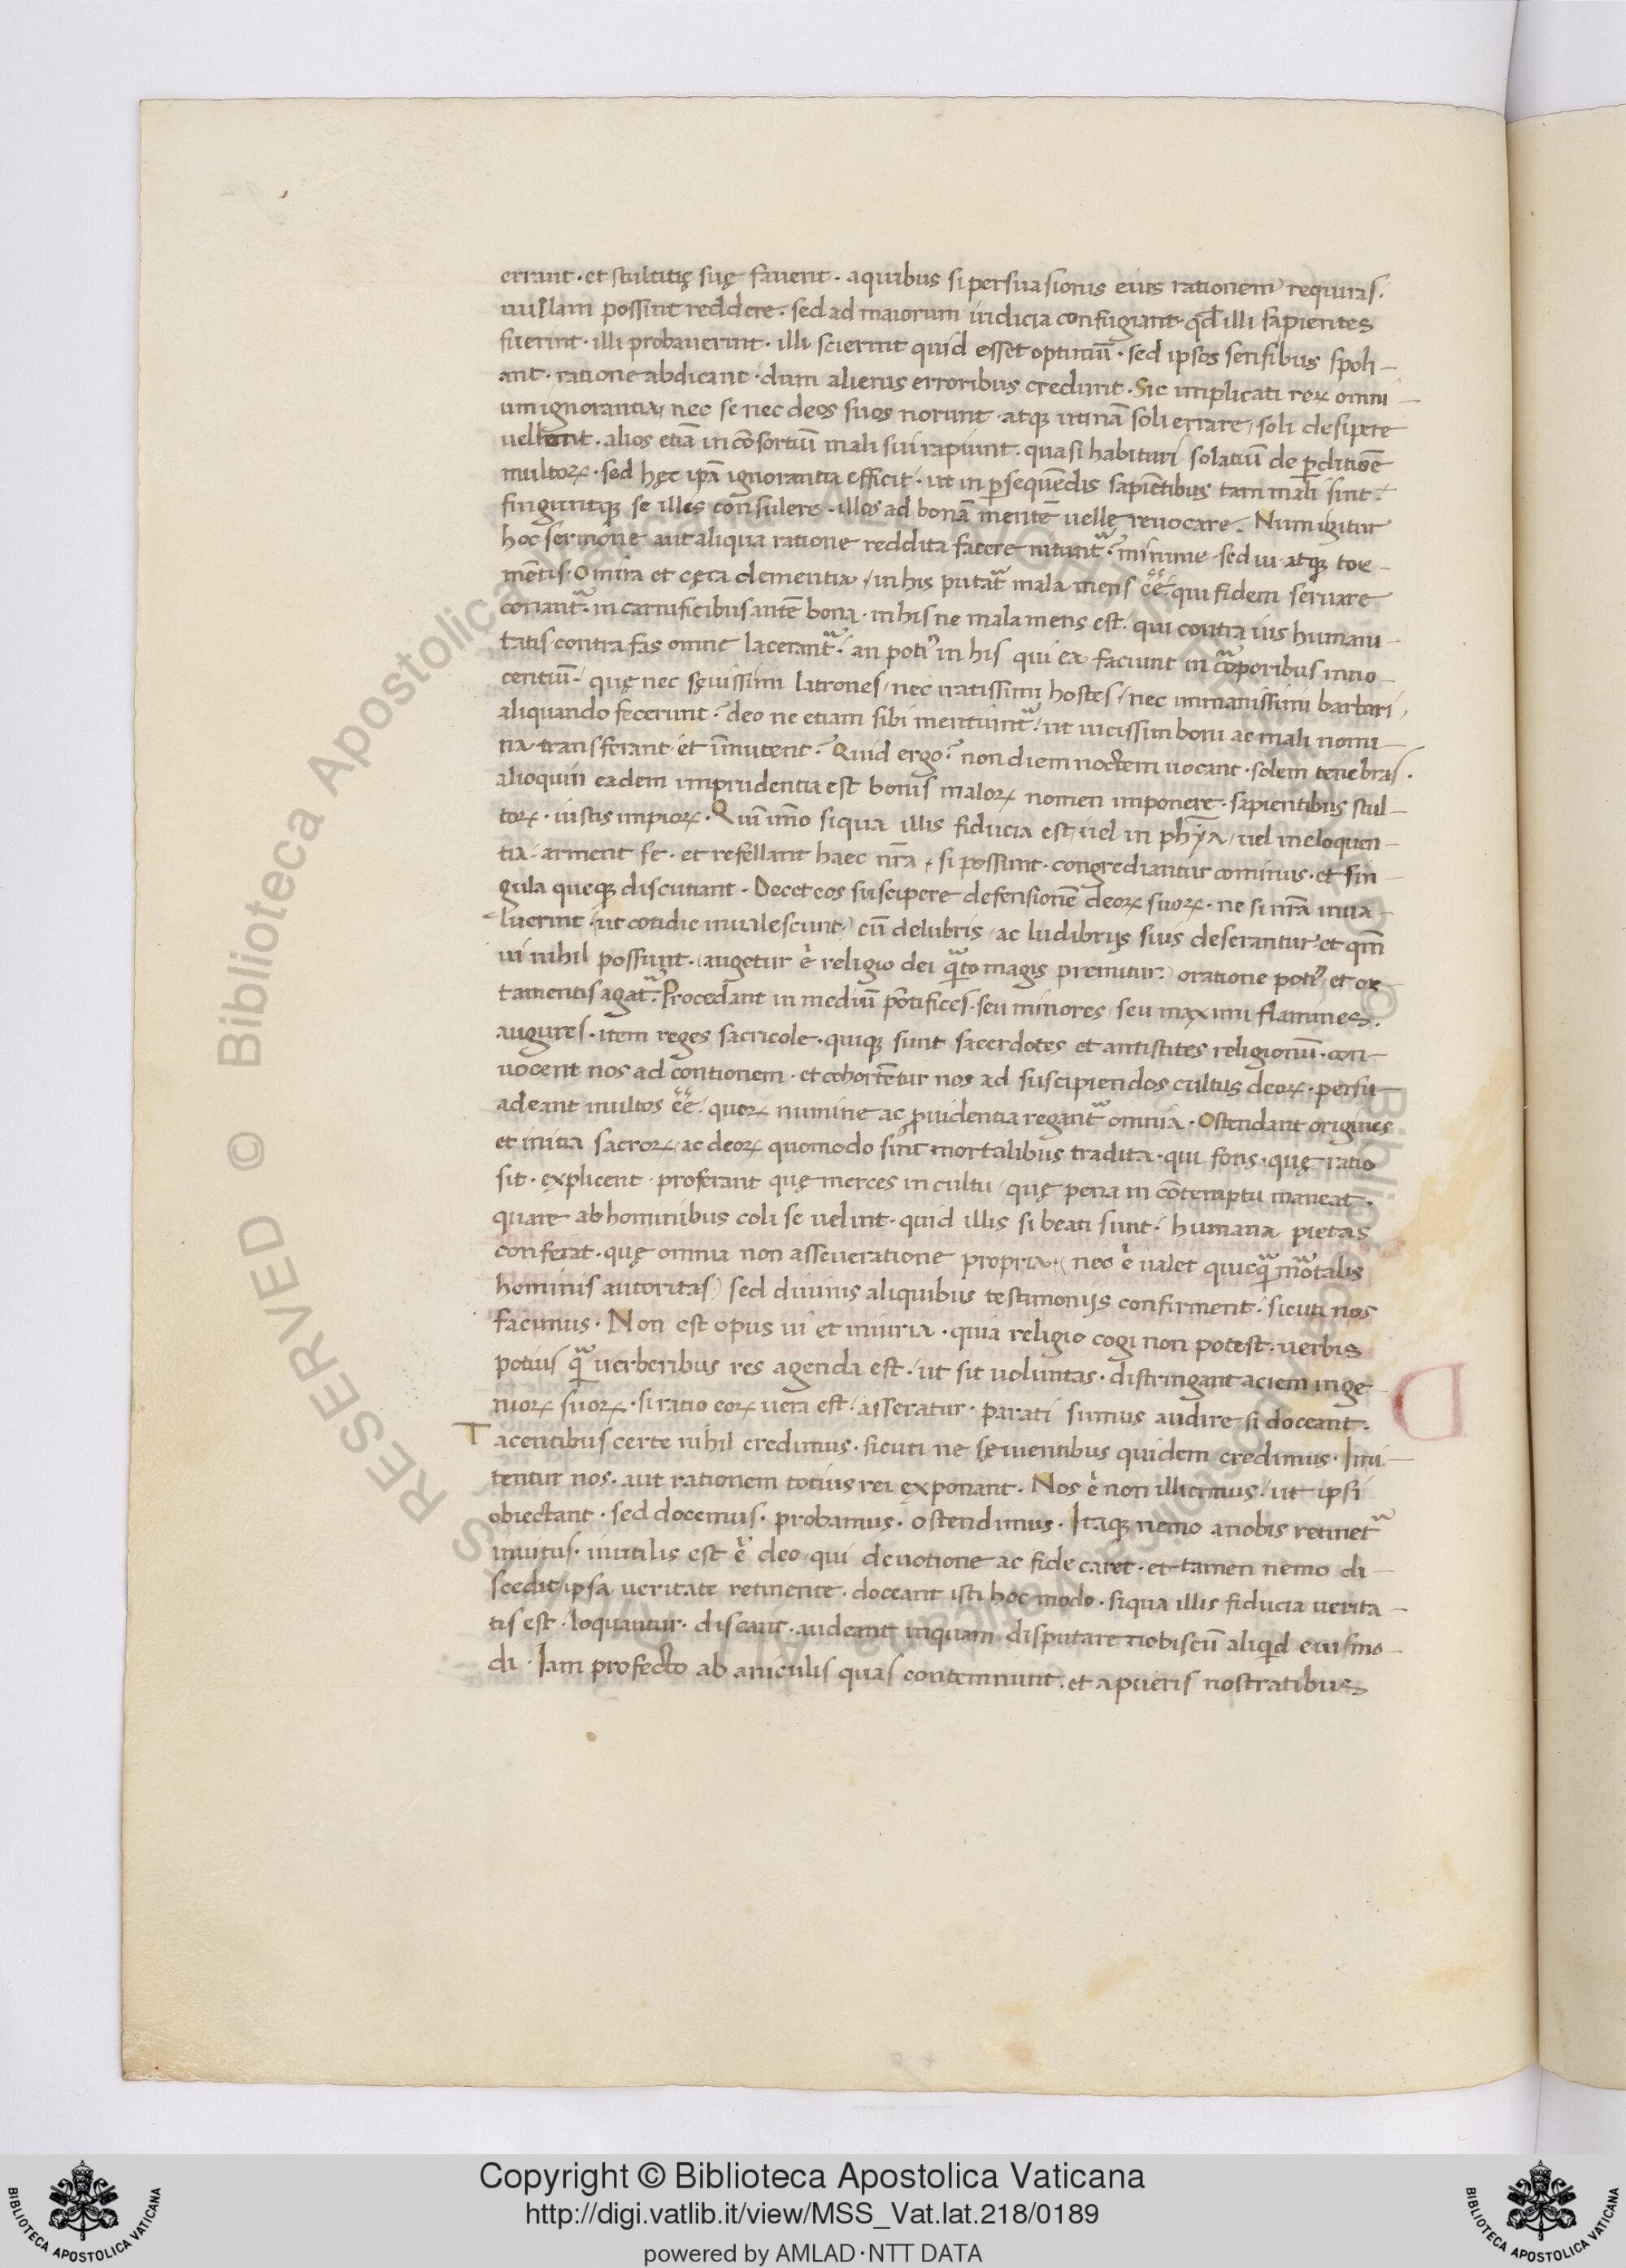 errant · et stultitię suę fauent · a quibus si persuasionis eius rationem requiras ·
nullam possint reddere · sed ad maiorum iudicia confugiant · qđ illi sapientes
fuerint · illi probauerint · illi scierint quid esset optimū · sed ipsos sensibus spoli-
ant · ratione abdicant · dum alienis erroribus credunt · Sic implicati reꝝ omni-
um ignorantia / nec se nec deos suos norunt · atqꝫ utinā soli errare / soli desipere
uellent · alios etiā in cōsortiū mali sui rapiunt · quasi habituri solatiū de ꝑditiōe
multoꝝ · sed hęc ip̄a ignorantia efficit · ut in ꝑsequēdis sapiētibus tam mali sint ·
finguntqꝫ se illis consulere · illos ad bonā mentē uelle reuocare · Num igitur
hoc sermone aut aliqua ratione reddita facere nitunt᷑ · minime · sed ui · atqꝫ tor-
mētis · O mira et cęca dementia / in his putat᷑ mala mens ēē · qui fidem seruare
conant᷑ · in carnificibus autē bona · in his ne mala mens est · qui contra ius humani-
tatis · contra fas omne lacerant᷑ · an potiꝰ in his qui ea faciunt in corporibus inno-
centiū · quę nec sęuissimi latrones / nec iratissimi hostes / nec immanissimi barbari /
aliquando fecerunt · deo ne etiam sibi mentiunt᷑ / ut uicissim boni ac mali nomi-
na transferant et īmutent · Quid ergo? non diem noctem uocant · solem tenebras ·
alioquin eadem imprudentia est bonis maloꝝ nomen imponere · sapientibus stul-
toꝝ · iustis impioꝝ · Quī īmo siqua illis fiducia est / uel in phȳa / uel in eloquen-
tia · arment se · et refellant haec nr̄a · si possunt · congrediantur cominus · et sin-
gula queqꝫ discutiant · Decet eos suscipere defensionē deoꝝ suoꝝ · ne si nr̄a inua-
luerint (ut cotidie inualescunt) cū delubris / ac ludibrijs suis deserantur · et qm̄
ui nihil possunt · (augetur .n. religio dei quāto magis premitur) oratione potiꝰ / et or-
tamentis agat᷑ · Procedant in mediū pōtifices · seu minores / seu maximi flamines ·
augures · item reges sacricole · quiqꝫ sunt sacerdotes et antistites religionū · con-
uocent nos ad contionem · et cohortētur nos ad suscipiendos cultus deoꝝ · persu-
adeant multos ēē / quoꝝ numine ac ꝓuidentia regant᷑ omnia · Ostendant origines
et initia sacroꝝ / ac deoꝝ quomodo sint mortalibus tradita · qui fons · quę ratio
sit · explicent · proferant quę merces in cultu / quę pena in cōtemptu maneat ·
quare ab hominibus coli se uelint · quid illis si beati sunt · humana pietas
conferat · quę omnia non asseueratione propria · (nec .n. ualet quicquā mortalis
hominis autoritas) sed diuinis aliquibus testimonijs confirment · sicuti nos
facimus · Non est opus ui et iniuria · quia religio cogi non potest · uerbis
potius quā uerberibus res agenda est · ut sit uoluntas · distringant aciem inge-
nioꝝ suoꝝ · si ratio eoꝝ uera est · asseratur · parati sumus audire si doceant ·
Tacentibus certe nihil credimus · sicuti ne sęuientibus quidem credimus · Imi-
tentur nos · aut rationem totius rei exponant · Nos .n. non illicimus · ut ipsi
obiectant · sed docemus · probamus · ostendimus · Itaqꝫ nemo a nobis retinet᷑
inuitus · inutilis est .n. deo qui deuotione ac fide caret · et tamen nemo di-
scedit / ipsa ueritate retinente · doceant isti hoc modo · siqua illis fiducia uerita-
tis est · loquantur · discant · audeant inquam disputare nobiscū aliqd eiusmo-
di · Iam profecto ab aniculis quas contemnunt · et a pueris nostratibus
Copyright © Biblioteca Apostolica Vaticana
http://digi.vatlib.it/view/MSS_Vat.lat.218/0189
powered by AMLAD·NTT DATA